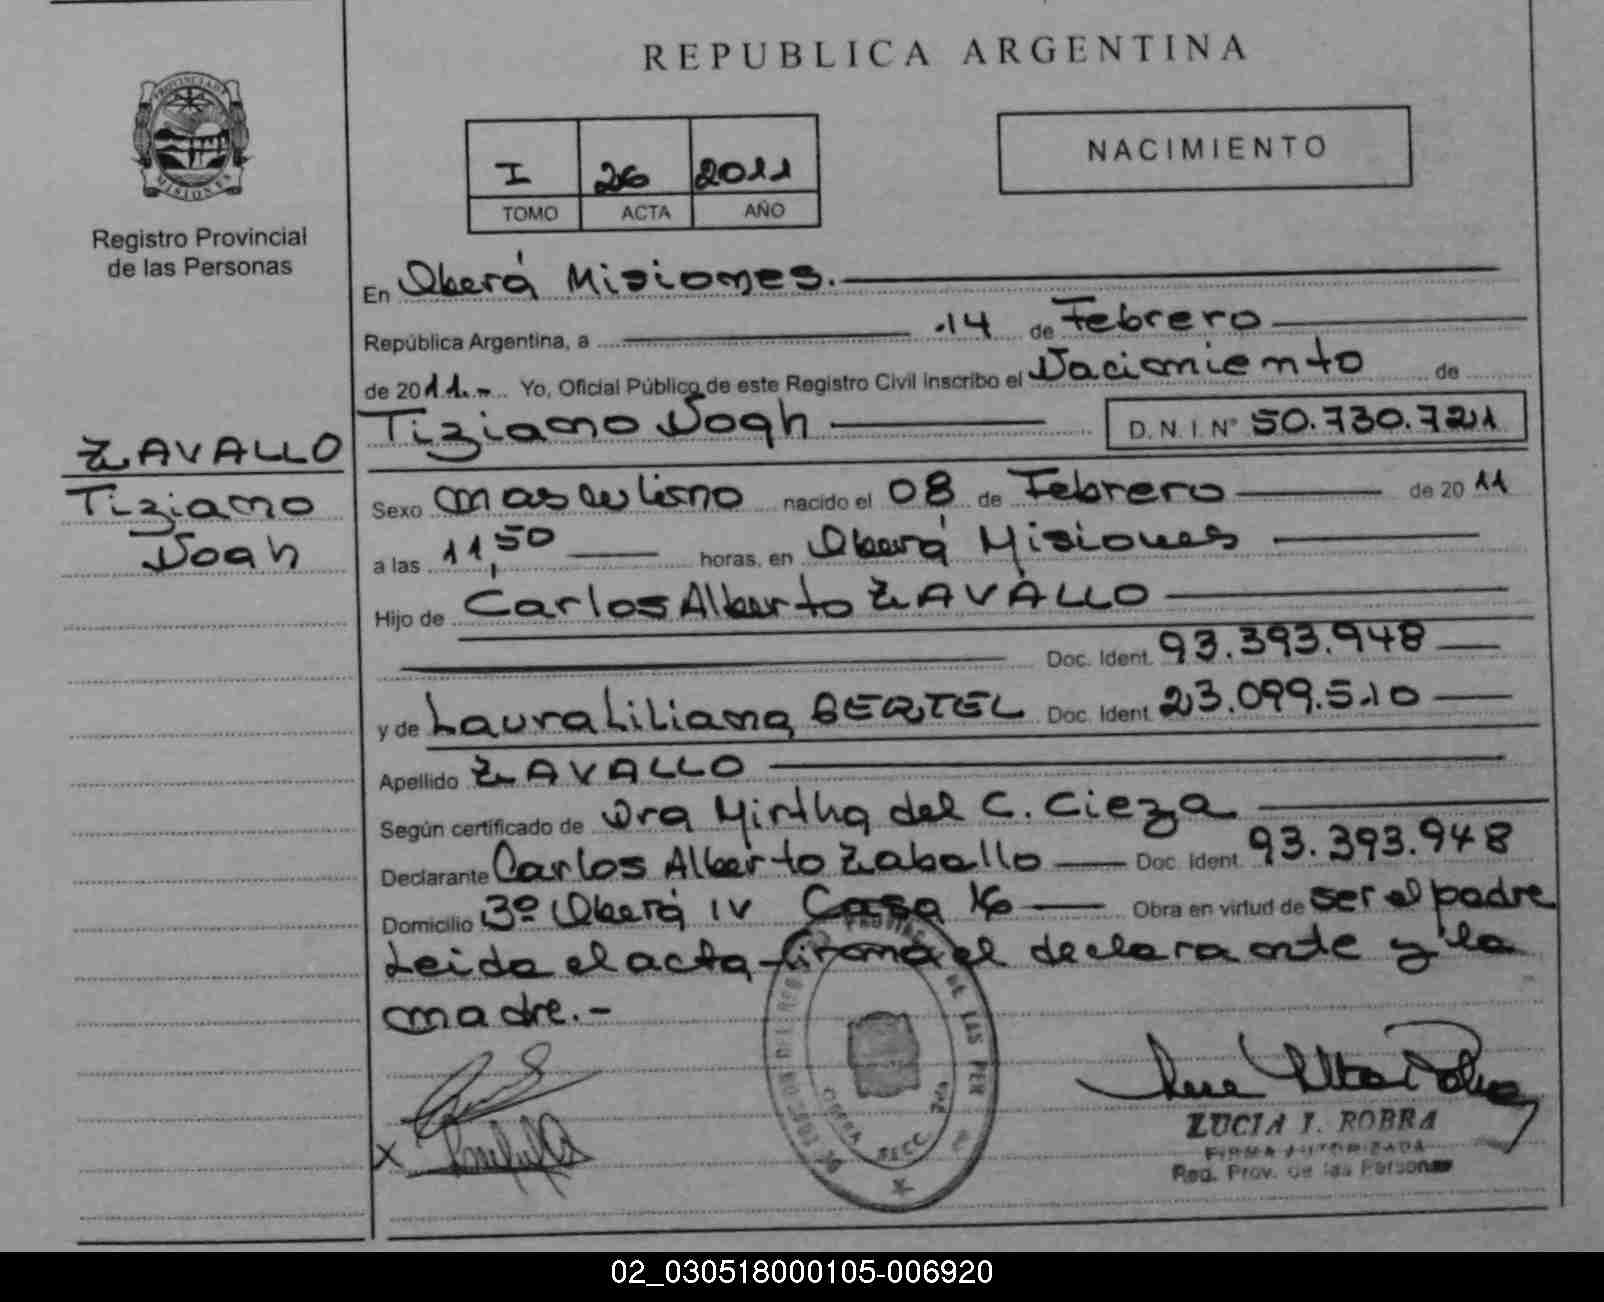 REPUBLICA ARGENTINA
PROVINCIA DE
MISIONES
Registro Provincial
de las Personas
I 26 2011
TOMO ACTA AÑO
NACIMIENTO
En Oberá Misiones.
República Argentina, a .14 de Febrero
de 2011.- Yo, Oficial Público de este Registro Civil inscribo el Nacimiento de
Tiziano Noah D.N.I. Nº 50.730.721
ZAVALLO
Tiziano
Noah
Sexo masculino nacido el 08 de Febrero de 2011
a las 11,50 horas, en Oberá Misiones
Hijo de Carlos Alberto ZAVALLO
Doc. Ident. 93.393.948
y de Laura Liliana BERTEL Doc. Ident. 23.099.510
Apellido ZAVALLO
Según certificado de Dra Mirtha del C. Cieza
Declarante Carlos Alberto Zaballo Doc. Ident. 93.393.948
Domicilio 3º Oberá IV Casa 16 Obra en virtud de ser el padre
Leida el acta firma el declarante y la
madre.-
X
LUCIA I. ROBRA
FIRMA AUTORIZADA
Reg. Prov. de las Personas
02_030518000105-006920